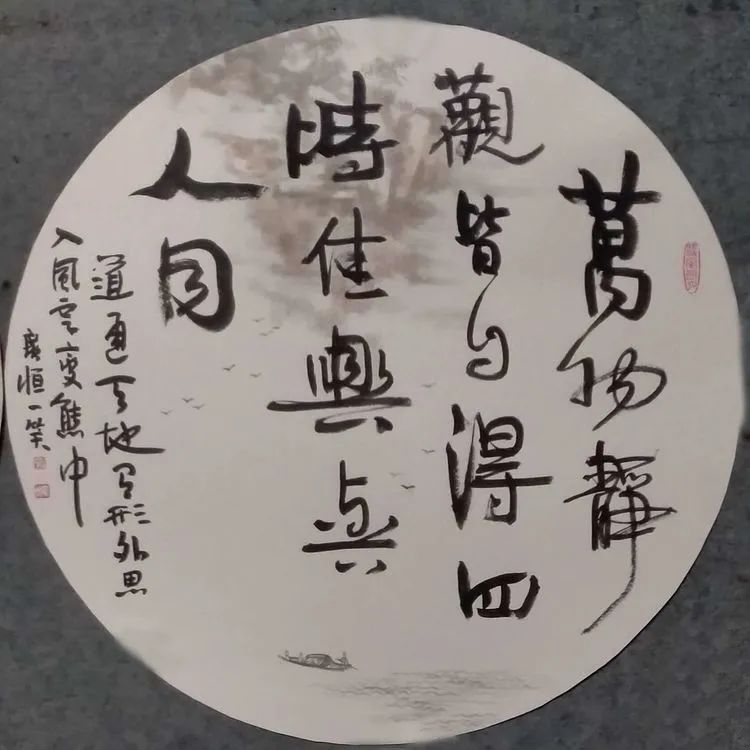 萬物靜
觀皆自得四
時佳興與
人同
道通天地有形外思
入風雲變態中
廣恒一笑